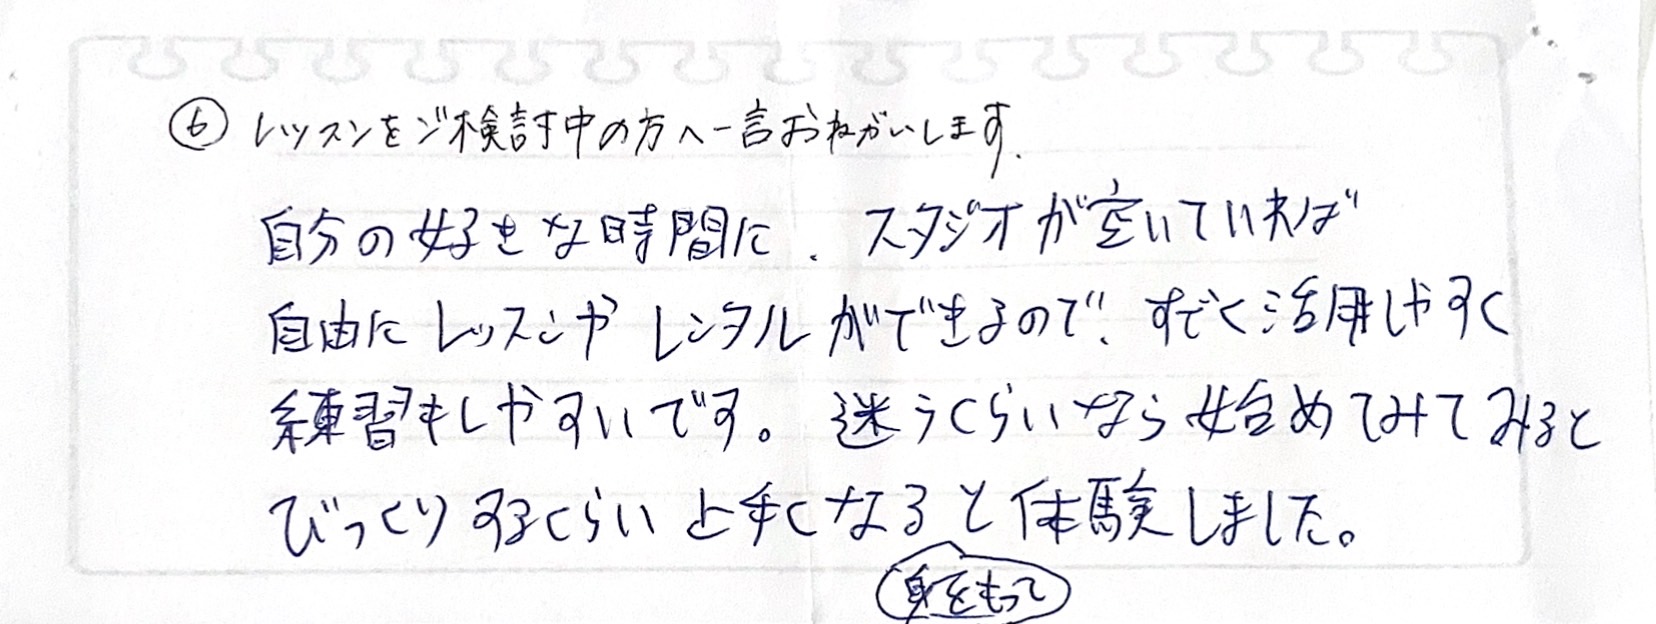 ⑥ レッスンをご検討中の方へ一言おねがいします.
自分の好きな時間に、スタジオが空いていれば
自由にレッスンや レンタルができるので、すごく活用しやすく
練習もしやすいです。 迷うくらいなら始めてみてみると
びっくりするくらい上手くなると体験しました。
身をもって